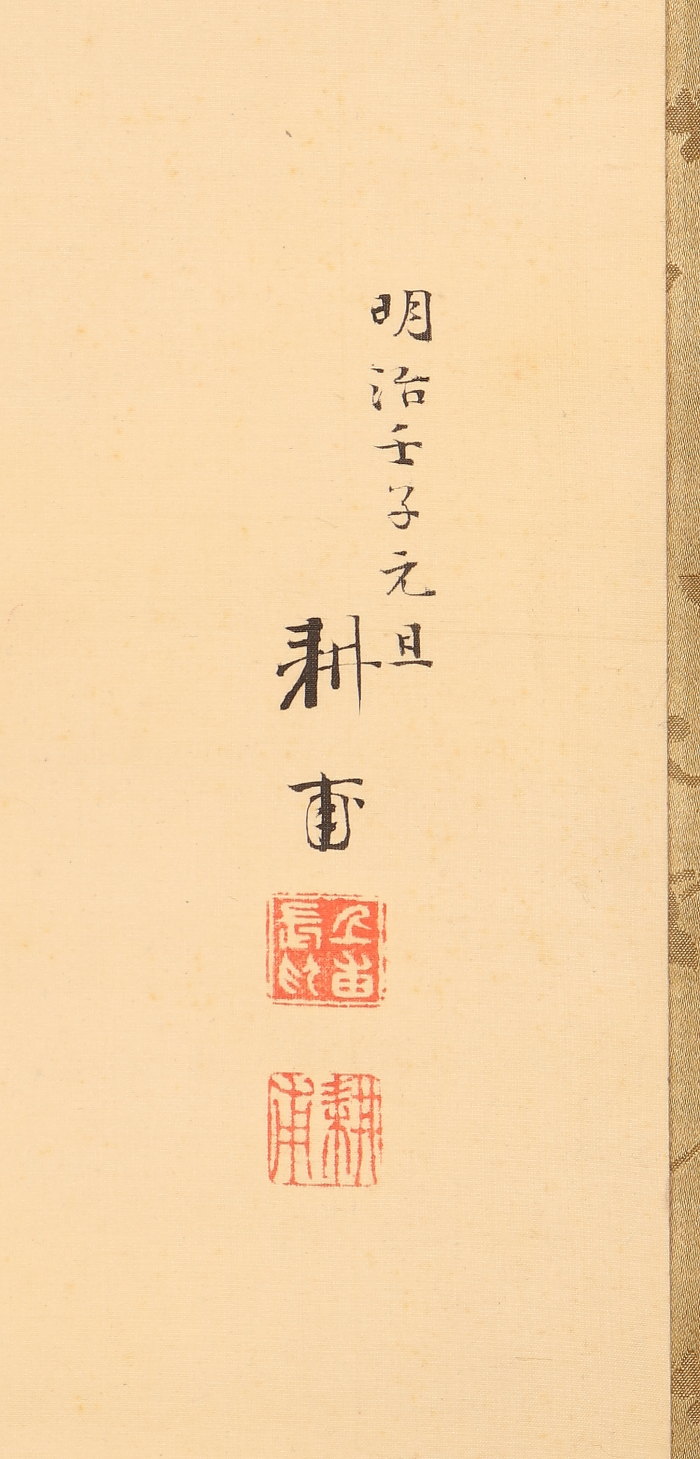 明治壬子元旦
耕甫
耕甫